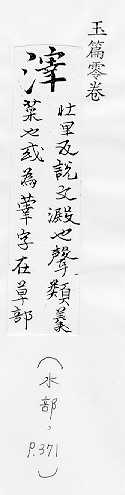 玉篇零卷
滓
壯里反說文澱也聲類羹
菜也或為䔂字在草部
(水部,
P.371)